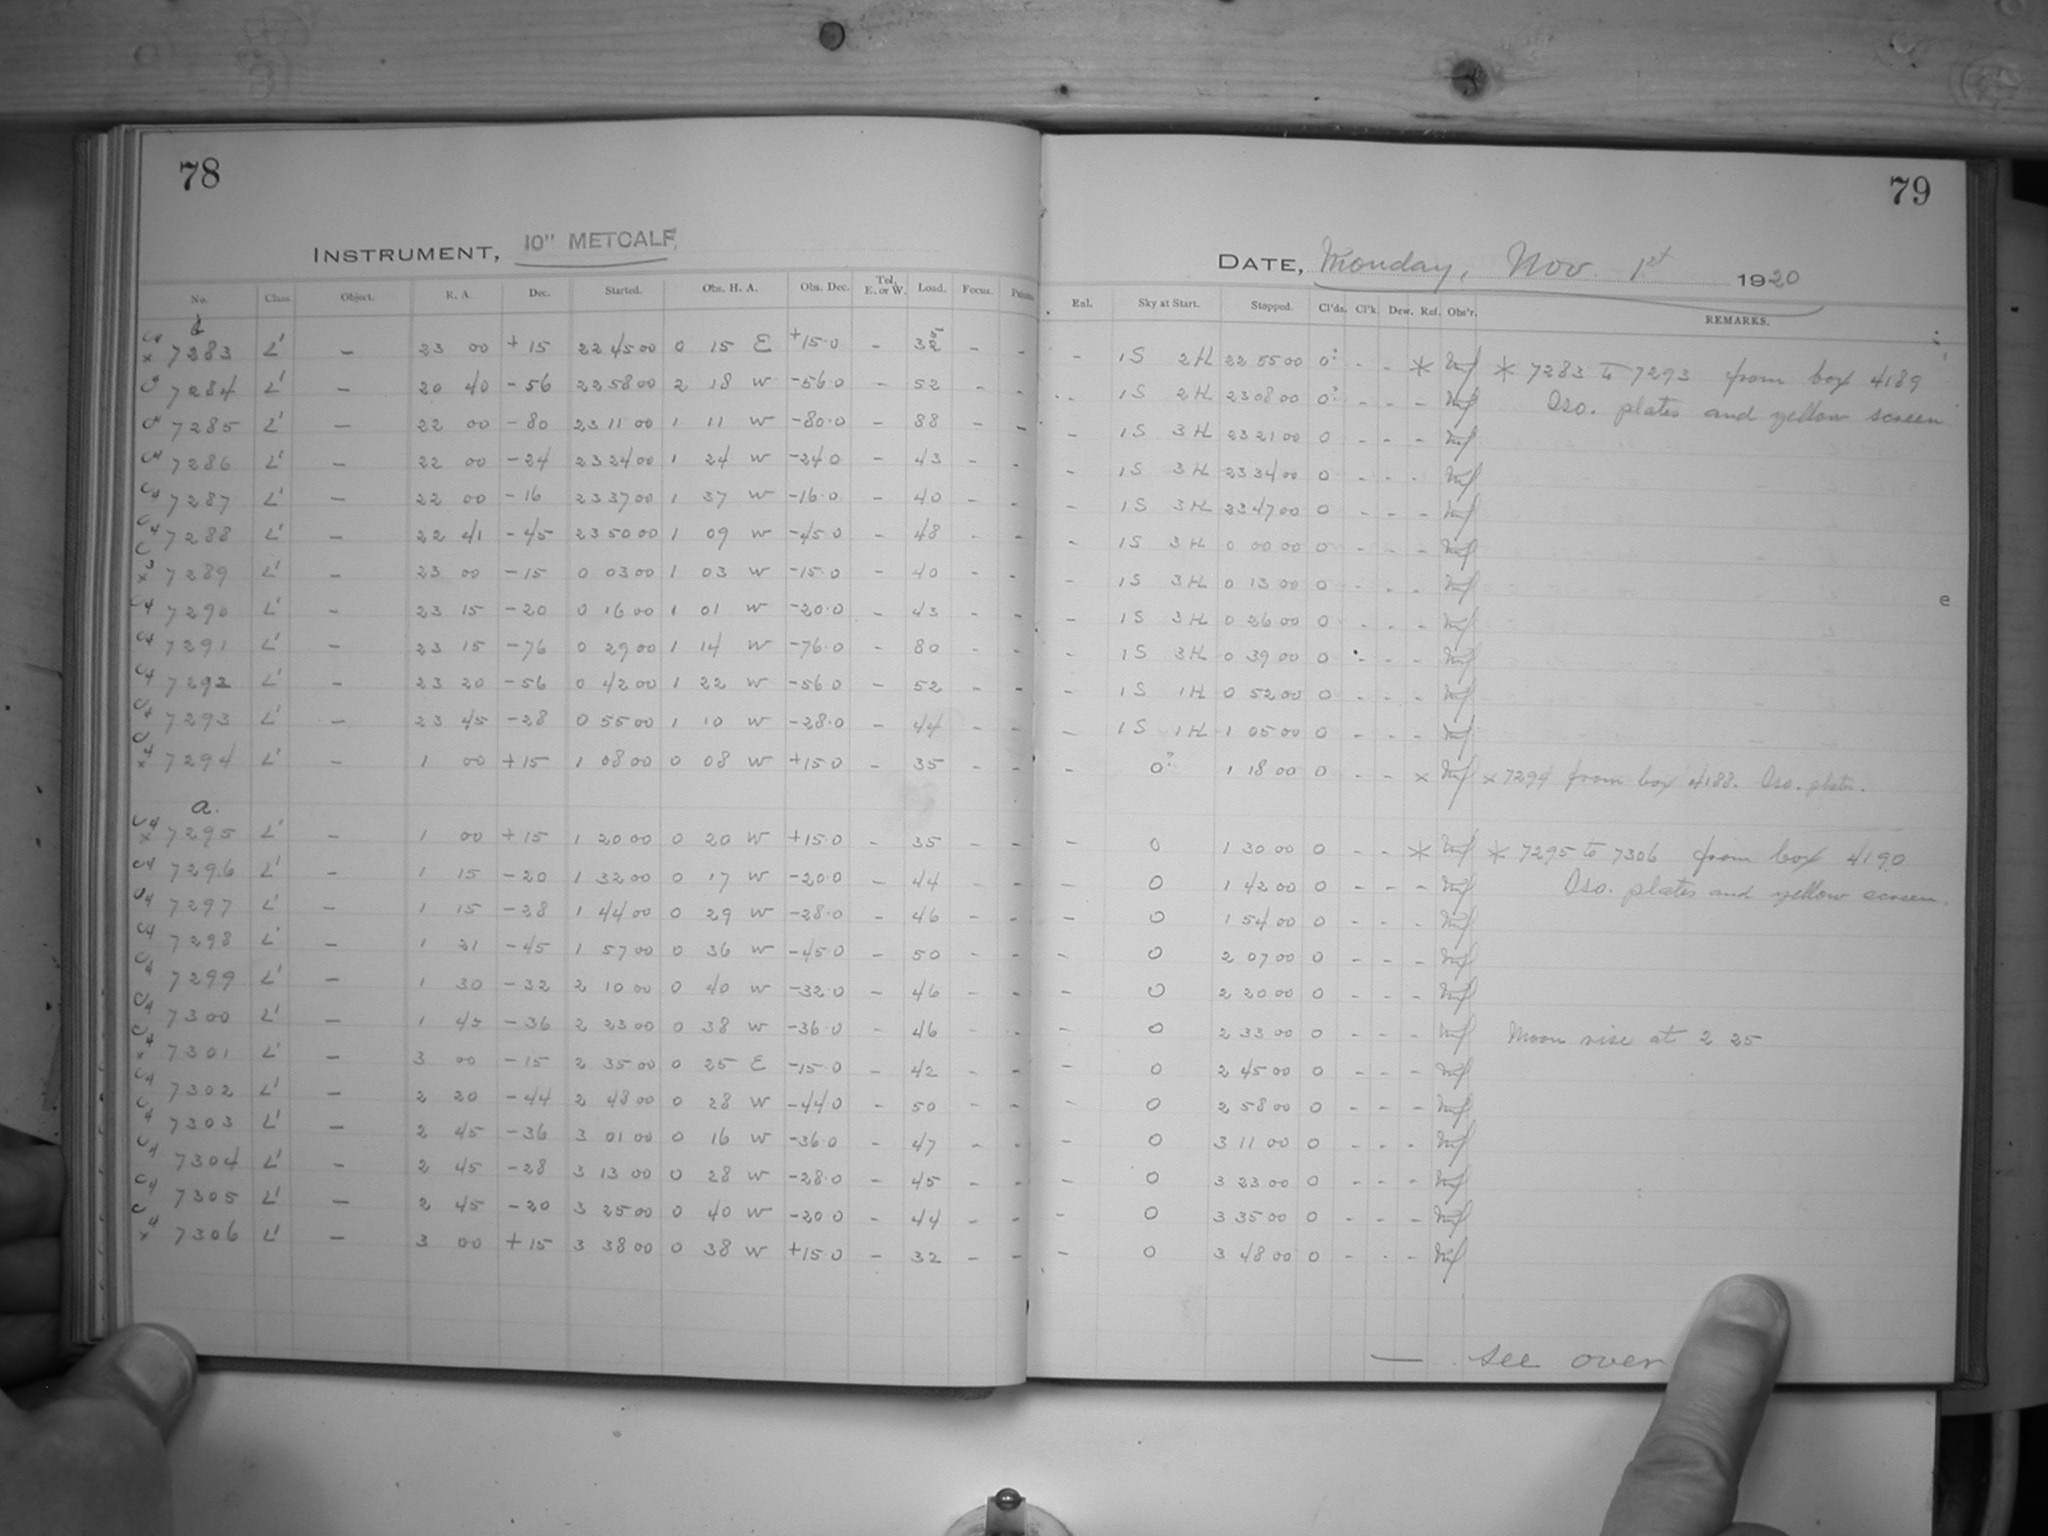 78
79
INSTRUMENT, 10" METCALF,
DATE, Monday, Nov. 1st 1920
No. Class. Object. R. A. Dec. Started. Obs. H. A. Obs. Dec. Tel. E. or W. Load. Focus. Eal. Sky at Start. Stopped. Cl'ds. Cl'k. Dew. Ref. Obs'r. REMARKS.
7283 L' – 23 00 +15 22 45 00 0 15 E +15.0 – – – – 1S 2H 22 55 00 0? - - * * 7283 to 7293 from box 4189
7284 L' – 20 40 -56 22 58 00 2 18 W -56.0 – 52 - - - 1S 2H 23 08 00 0? - - - Iso. plates and yellow screen
7285 L' – 22 00 -80 23 11 00 1 11 W -80.0 – 88 - - - 1S 3H 23 21 00 0 - - -
7286 L' – 22 00 -24 23 24 00 1 24 W -24.0 – 43 - - - 1S 3H 23 34 00 0 - - -
7287 L' – 22 00 -16 23 37 00 1 37 W -16.0 – 40 - - - 1S 3H 23 47 00 0 - - -
7288 L' – 22 41 -45 23 50 00 1 09 W -45.0 – 48 - - - 1S 3H 0 00 00 0 - - -
7289 L' – 23 00 -15 0 03 00 1 03 W -15.0 – 40 - - - 1S 3H 0 13 00 0 - - -
7290 L' – 23 15 -20 0 16 00 1 01 W -20.0 – 43 - - - 1S 3H 0 26 00 0 - - -
7291 L' – 23 15 -76 0 29 00 1 14 W -76.0 – 80 - - - 1S 3H 0 39 00 0 - - -
7292 L' – 23 20 -56 0 42 00 1 22 W -56.0 – 52 - - - 1S 1H 0 52 00 0 - - -
7293 L' – 23 45 -28 0 55 00 1 10 W -28.0 – 44 - - - 1S 1H 1 05 00 0 - - -
7294 L' – 1 00 +15 1 08 00 0 08 W +15.0 – 35 - - - 0? 1 18 00 0 - - x x 7294 from box 4188. Iso. plates.
a.
7295 L' – 1 00 +15 1 20 00 0 20 W +15.0 – 35 - - - 0 1 30 00 0 - - * * 7295 to 7306 from box 4190
7296 L' – 1 15 -20 1 32 00 0 17 W -20.0 – 44 - - - 0 1 42 00 0 - - - Iso. plates and yellow screen.
7297 L' – 1 15 -28 1 44 00 0 29 W -28.0 – 46 - - - 0 1 54 00 0 - - -
7298 L' – 1 21 -45 1 57 00 0 36 W -45.0 – 50 - - - 0 2 07 00 0 - - -
7299 L' – 1 30 -32 2 10 00 0 40 W -32.0 – 46 - - - 0 2 20 00 0 - - -
7300 L' – 1 45 -36 2 23 00 0 38 W -36.0 – 46 - - - 0 2 33 00 0 - - - Moon rise at 2 25
7301 L' – 3 00 -15 2 35 00 0 25 E -15.0 – 42 - - - 0 2 45 00 0 - - -
7302 L' – 2 20 -44 2 48 00 0 28 W -44.0 – 50 - - - 0 2 58 00 0 - - -
7303 L' – 2 45 -36 3 01 00 0 16 W -36.0 – 47 - - - 0 3 11 00 0 - - -
7304 L' – 2 45 -28 3 13 00 0 28 W -28.0 – 45 - - - 0 3 23 00 0 - - -
7305 L' – 2 45 -20 3 25 00 0 40 W -20.0 – 44 - - - 0 3 35 00 0 - - -
7306 L' – 3 00 +15 3 38 00 0 38 W +15.0 – 32 - - - 0 3 48 00 0 - - -
— see over